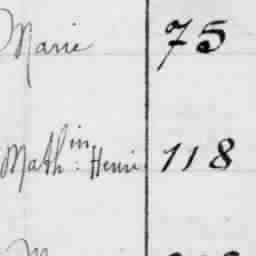 Marie 75
Math.in Henri 118